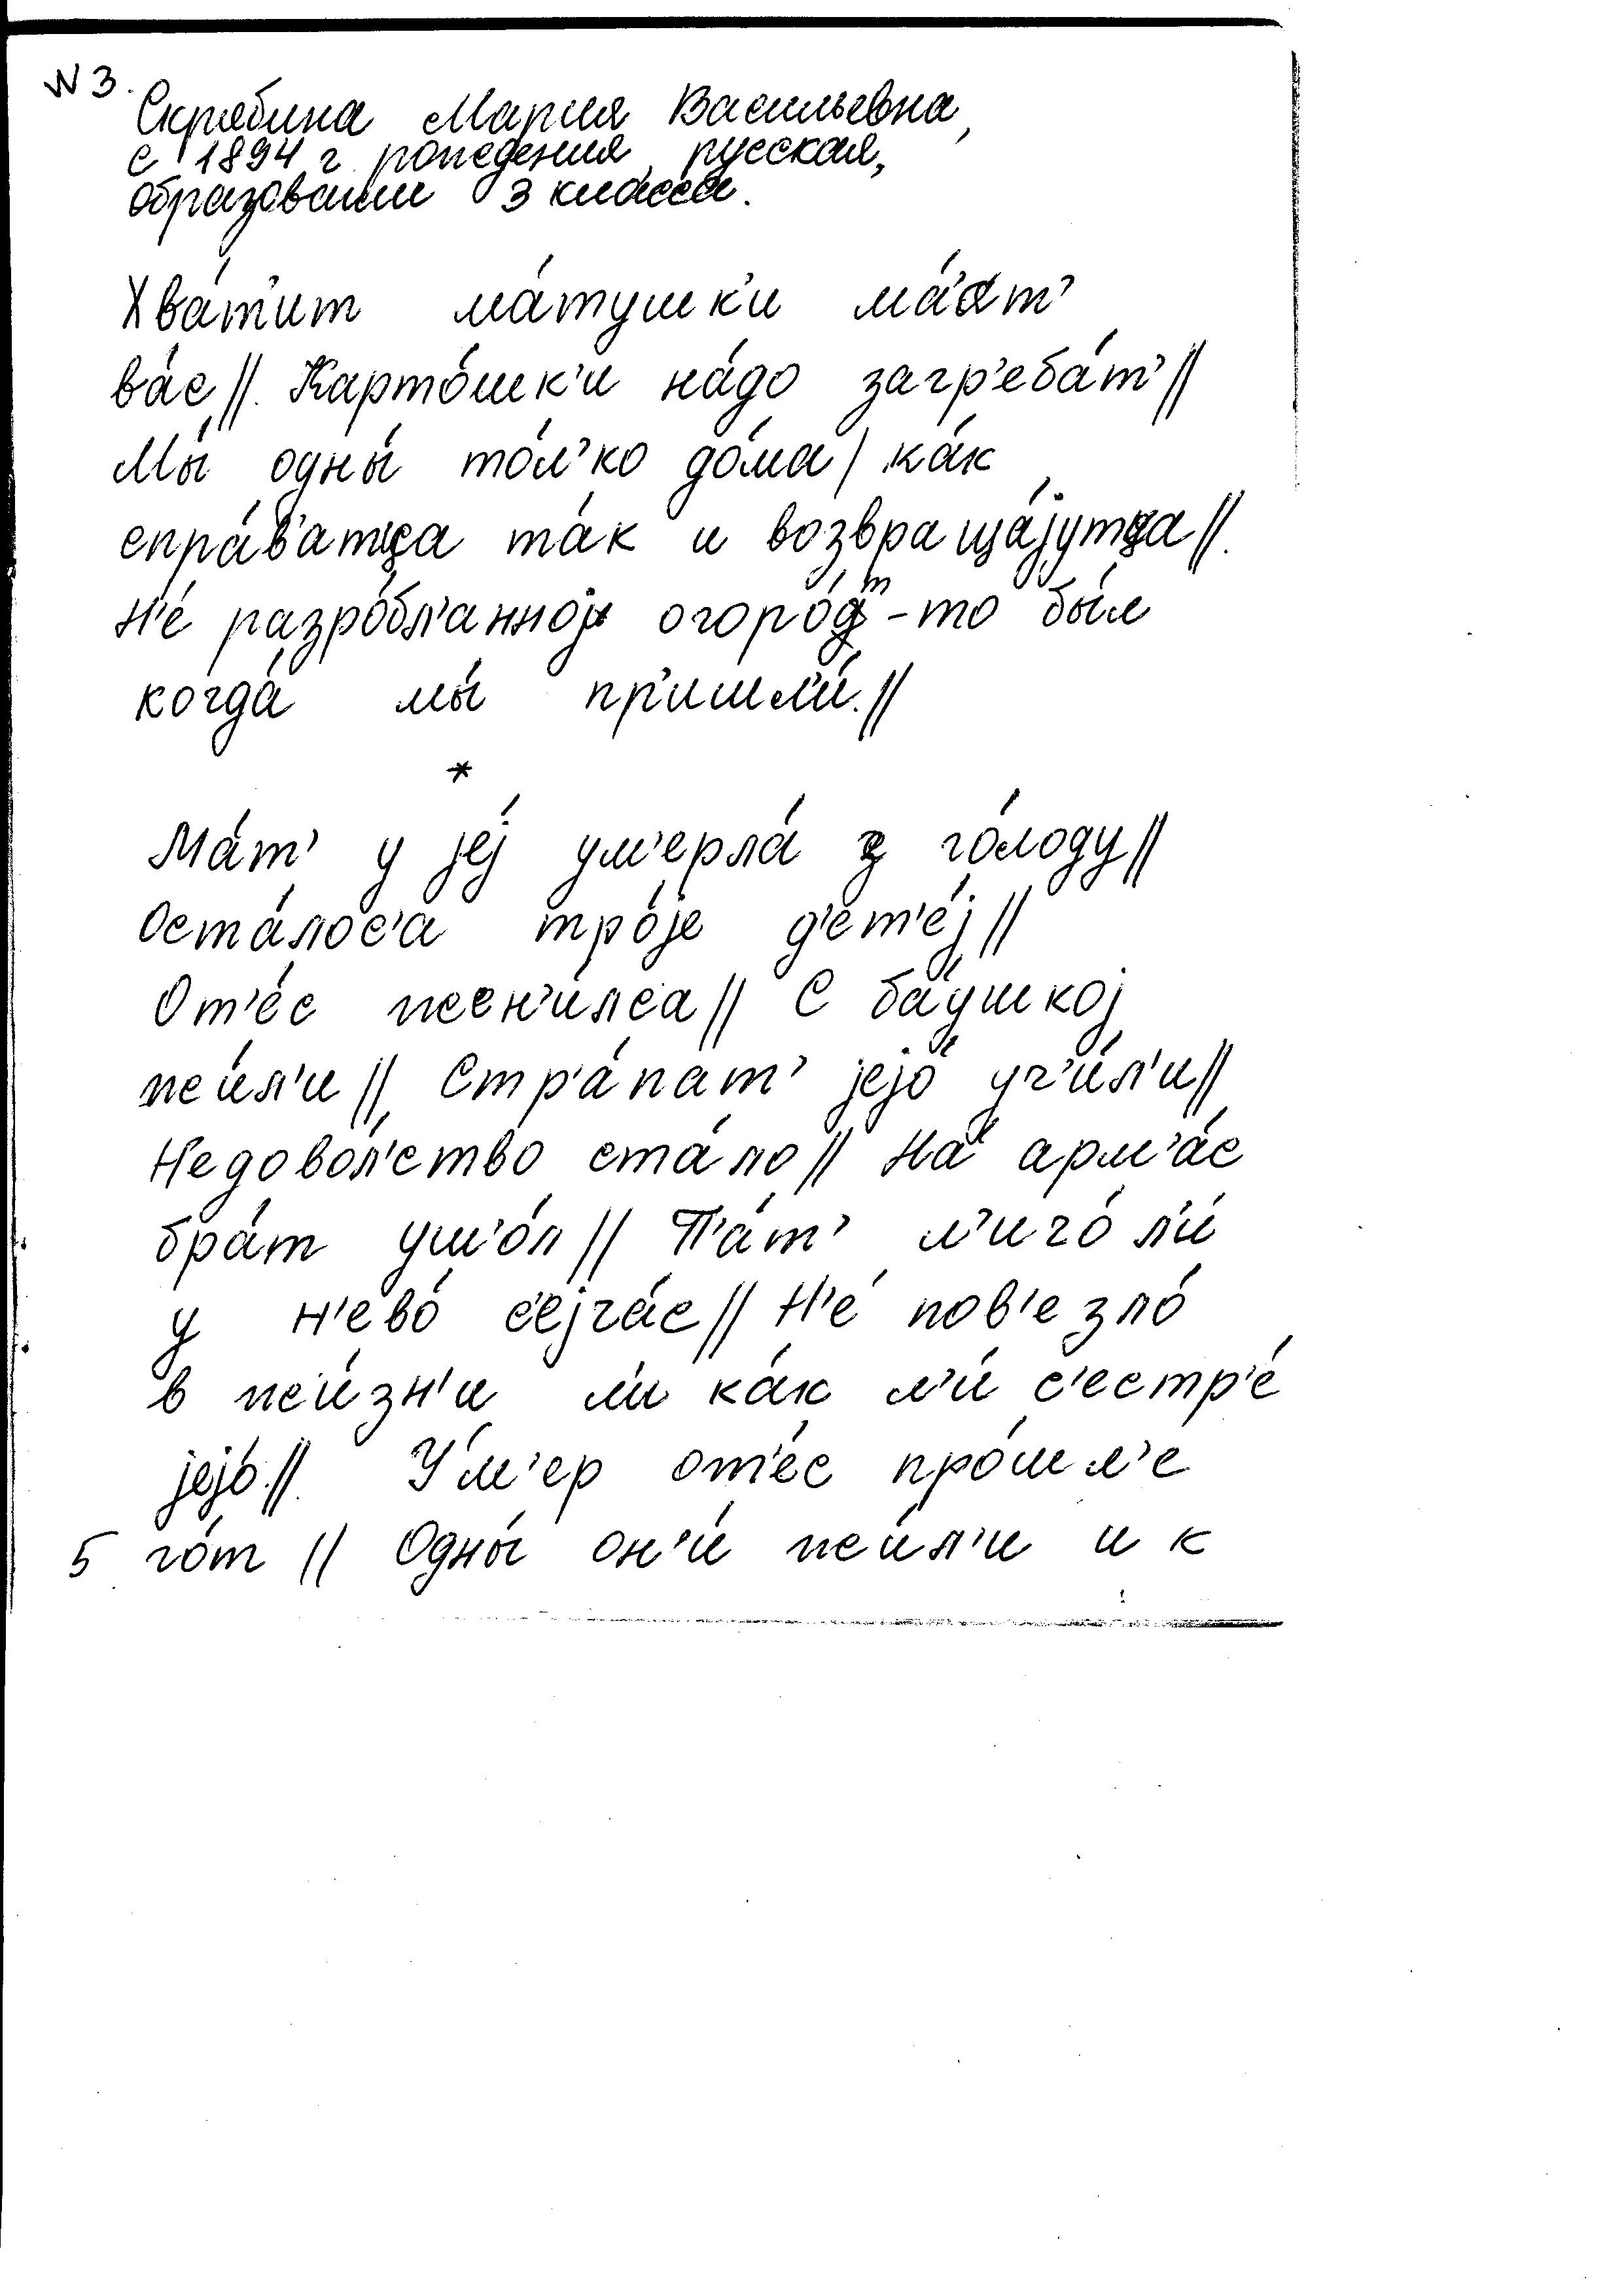 N 3.
Скрябина Мария Васильевна,
с 1894 г рождения, русская,
образование 3 класса.
Хва́т'ит ма́тушк'и ма́ат'
ва́с//. Карто́шк'и на́до загр'еба́т'//
Мы́ одны́ то́л'ко до́ма/ ка́к
спра́в'атца та́к и возвраща́јутца//.
Н'е́ разро́бл'анној огоро́т-то бы́л
когда́ мы́ пр'ишл'и́.//
*
Ма́т' у је́ј ум'ерла́ з го́лоду//
Оста́лос'а тро́је д'ет'е́ј//
От'е́с жен'и́лса// С ба́ушкој
жи́л'и// Стр'а́пат' јејо́ уч'и́л'и//
Н'едово́л'ство ста́ло// На́ арм'а́с
бра́т уш'о́л// П'а́т' л'и го́ л'и́
у н'ево́ с'ејча́с// Н'е́ пов'езло́
в жи́зн'и ли ка́к л'и́ с'естр'е́
јејо́.// У́м'ер от'е́с про́шл'е
5 го́т // Одны́ он'и́ жи́л'и и к